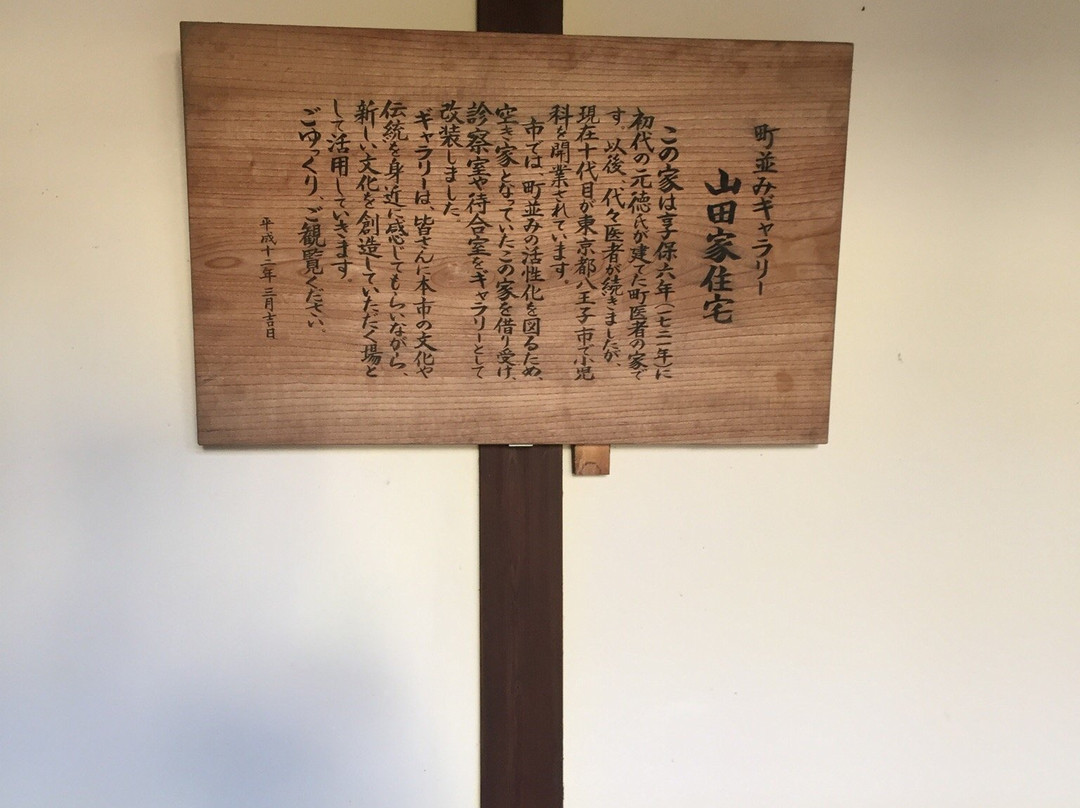 町並みギャラリー
山田家住宅
この家は享保六年(一七二一年)に
初代の元徳氏が建てた町医者の家で
す。以後、代々医者が続きましたが、
現在十代目が東京都八王子市で小児
科を開業されています。
市では、町並みの活性化を図るため、
空き家となっていたこの家を借り受け、
診察室や待合室をギャラリーとして
改装しました。
ギャラリーは、皆さんに本市の文化や
伝統を身近に感じてもらいながら、
新しい文化を創造していただく場と
して活用していきます。
ごゆっくり、ご観覧ください。
平成十二年三月吉日